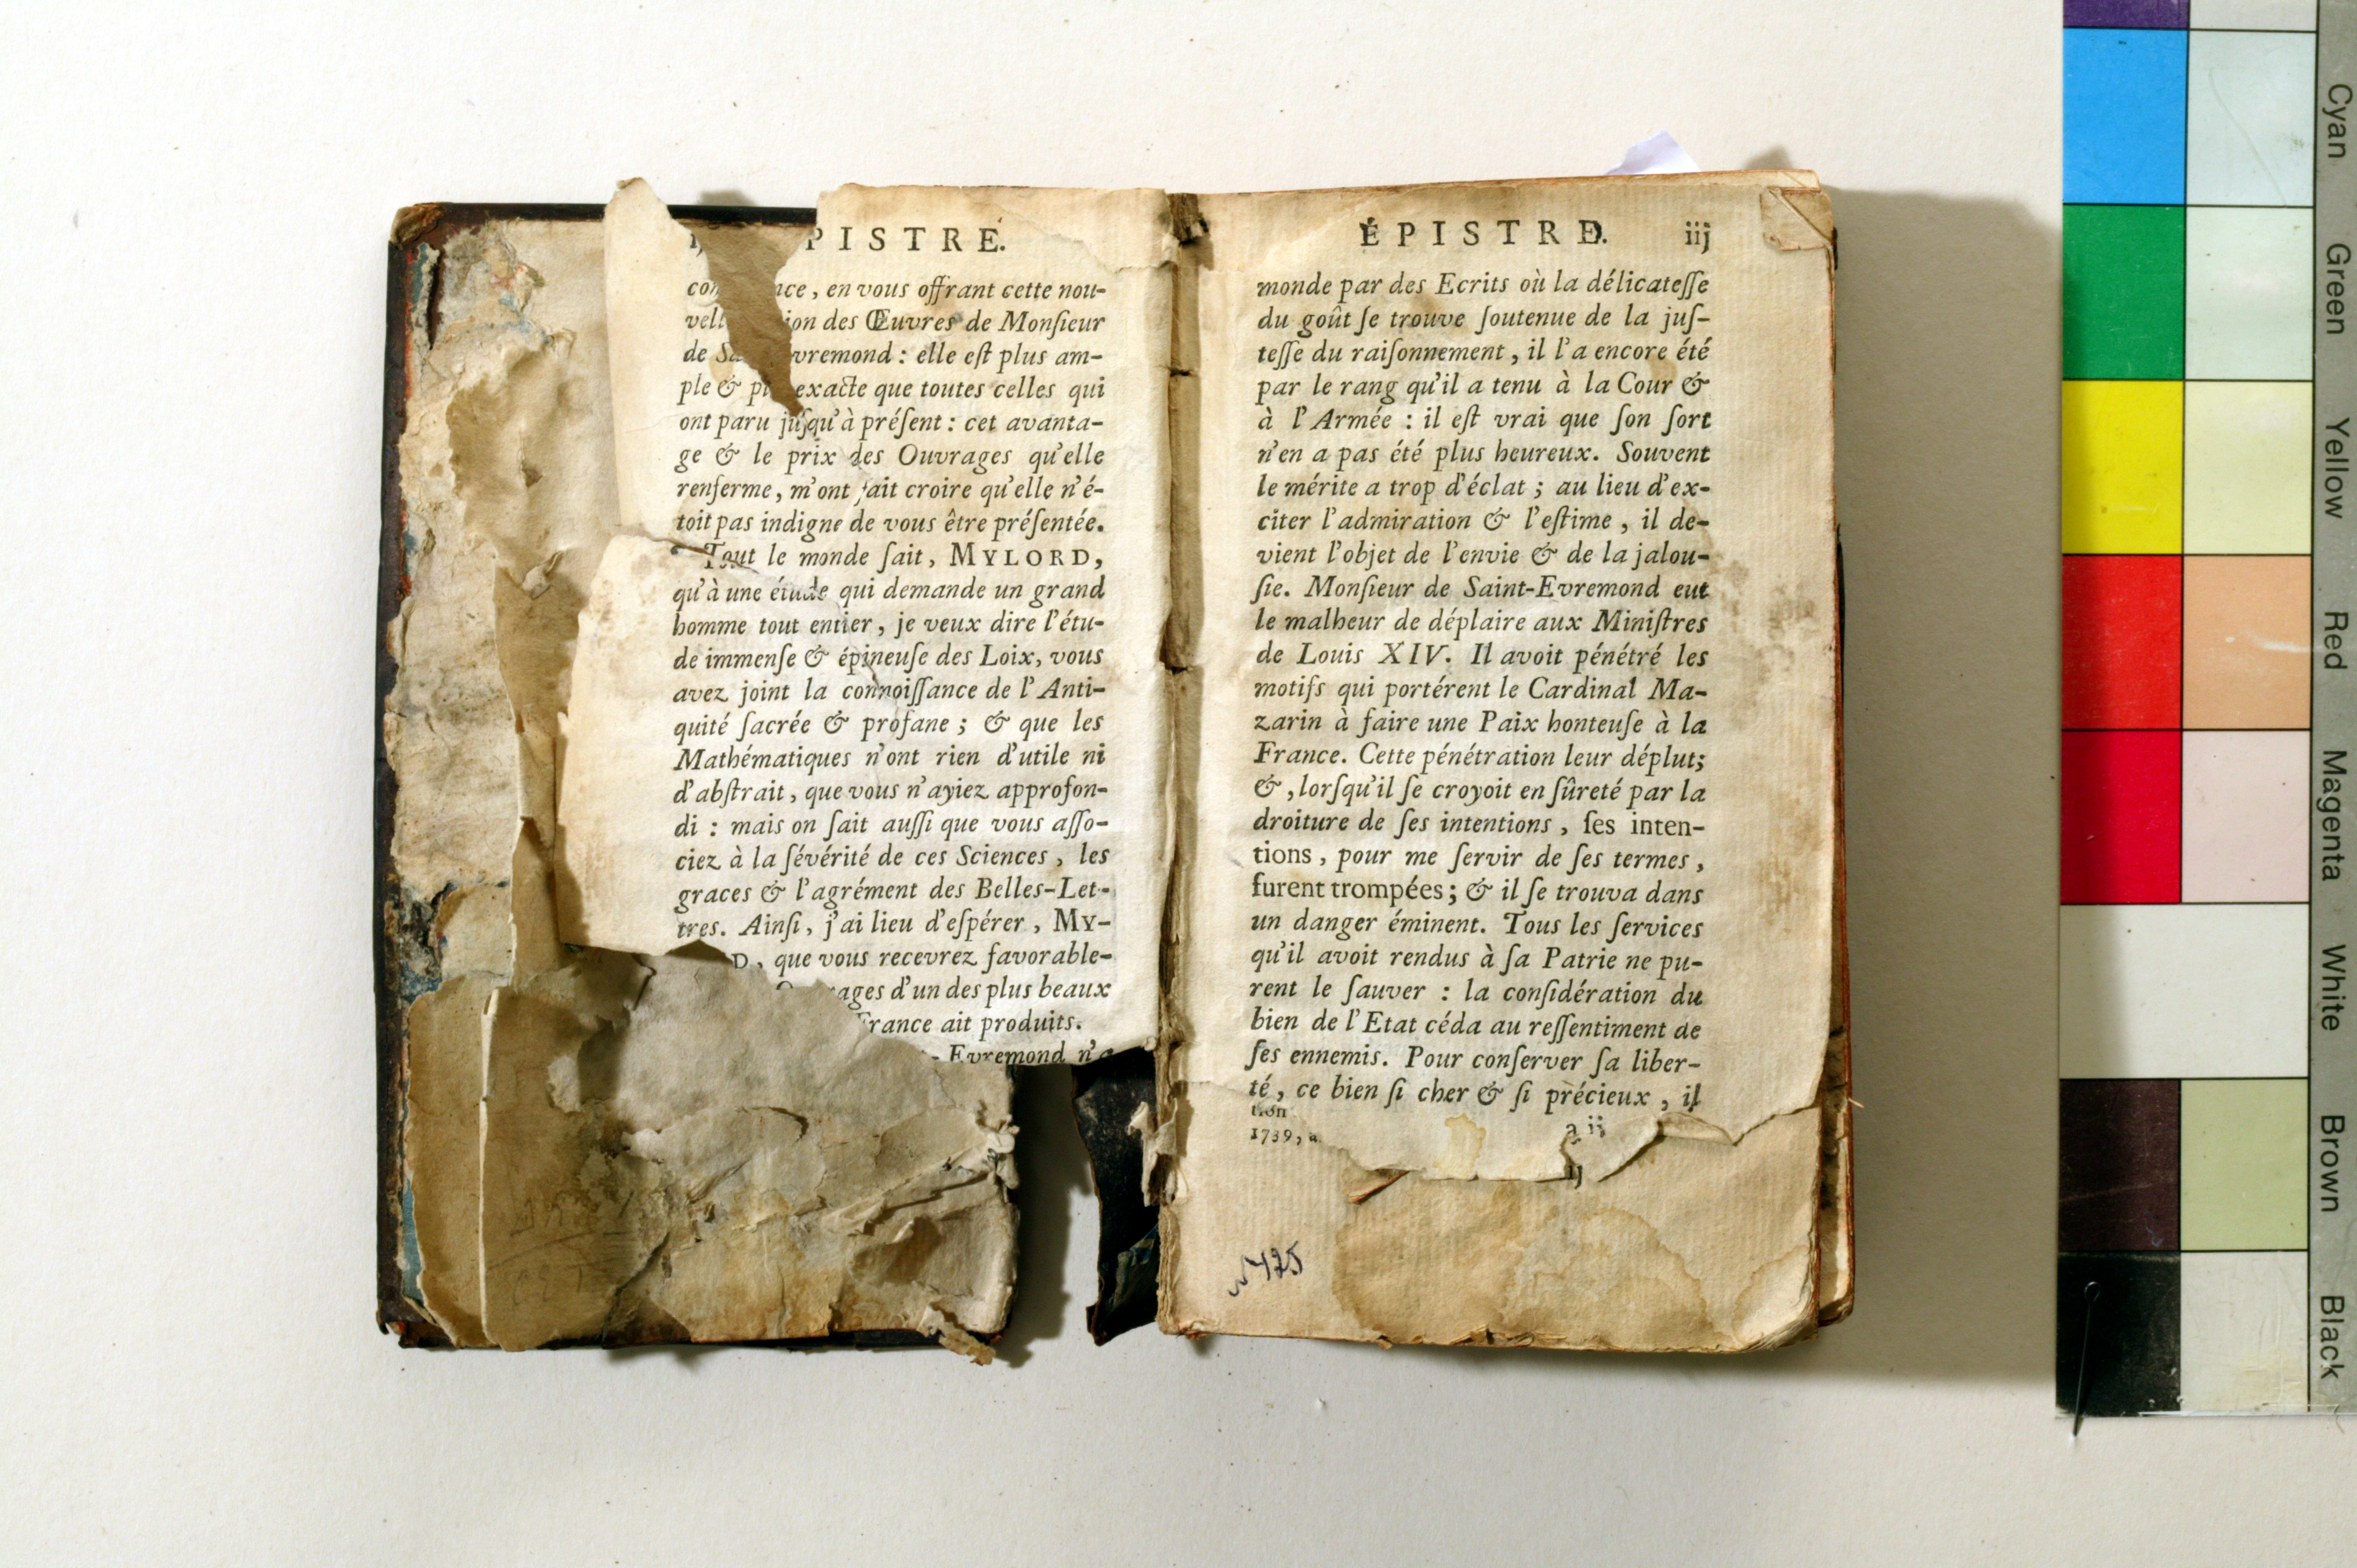 PISTRE.
ce, en vous offrant cette nou-
ion des Œuvres de Monſieur
de vremond : elle eſt plus am-
ple & exacte que toutes celles qui
ont paru juſqu'à préſent : cet avanta-
ge & le prix des Ouvrages qu'elle
renferme, m'ont fait croire qu'elle n'é-
toit pas indigne de vous être préſentée.
Tout le monde ſait, MYLORD,
qu'à une étude qui demande un grand
homme tout entier, je veux dire l'étu-
de immenſe & épineuſe des Loix, vous
avez joint la connoiſſance de l'Anti-
quité ſacrée & profane ; & que les
Mathématiques n'ont rien d'utile ni
d'abſtrait, que vous n'ayiez approfon-
di : mais on ſait auſſi que vous aſſo-
ciez à la ſévérité de ces Sciences, les
graces & l'agrément des Belles-Let-
tres. Ainſi, j'ai lieu d'eſpérer, MY-
D, que vous recevrez favorable-
rages d'un des plus beaux
France ait produits.
- Evremond n'a
ÉPISTRE. iij
monde par des Ecrits où la délicateſſe
du goût ſe trouve ſoutenue de la juſ-
teſſe du raiſonnement, il l'a encore été
par le rang qu'il a tenu à la Cour &
à l'Armée : il eſt vrai que ſon ſort
n'en a pas été plus heureux. Souvent
le mérite a trop d'éclat ; au lieu d'ex-
citer l'admiration & l'eſtime, il de-
vient l'objet de l'envie & de la jalou-
ſie. Monſieur de Saint-Evremond eut
le malheur de déplaire aux Miniſtres
de Louis XIV. Il avoit pénétré les
motifs qui portérent le Cardinal Ma-
zarin à faire une Paix honteuſe à la
France. Cette pénétration leur déplut;
&, lorſqu'il ſe croyoit en ſûreté par la
droiture de ſes intentions, ſes inten-
tions, pour me ſervir de ſes termes,
furent trompées; & il ſe trouva dans
un danger éminent. Tous les ſervices
qu'il avoit rendus à ſa Patrie ne pu-
rent le ſauver : la conſidération du
bien de l'Etat céda au reſſentiment de
ſes ennemis. Pour conſerver ſa liber-
té, ce bien ſi cher & ſi précieux, il
a ij
tion
1739, a
ij
475
Cyan Green Yellow Red Magenta White Brown Black